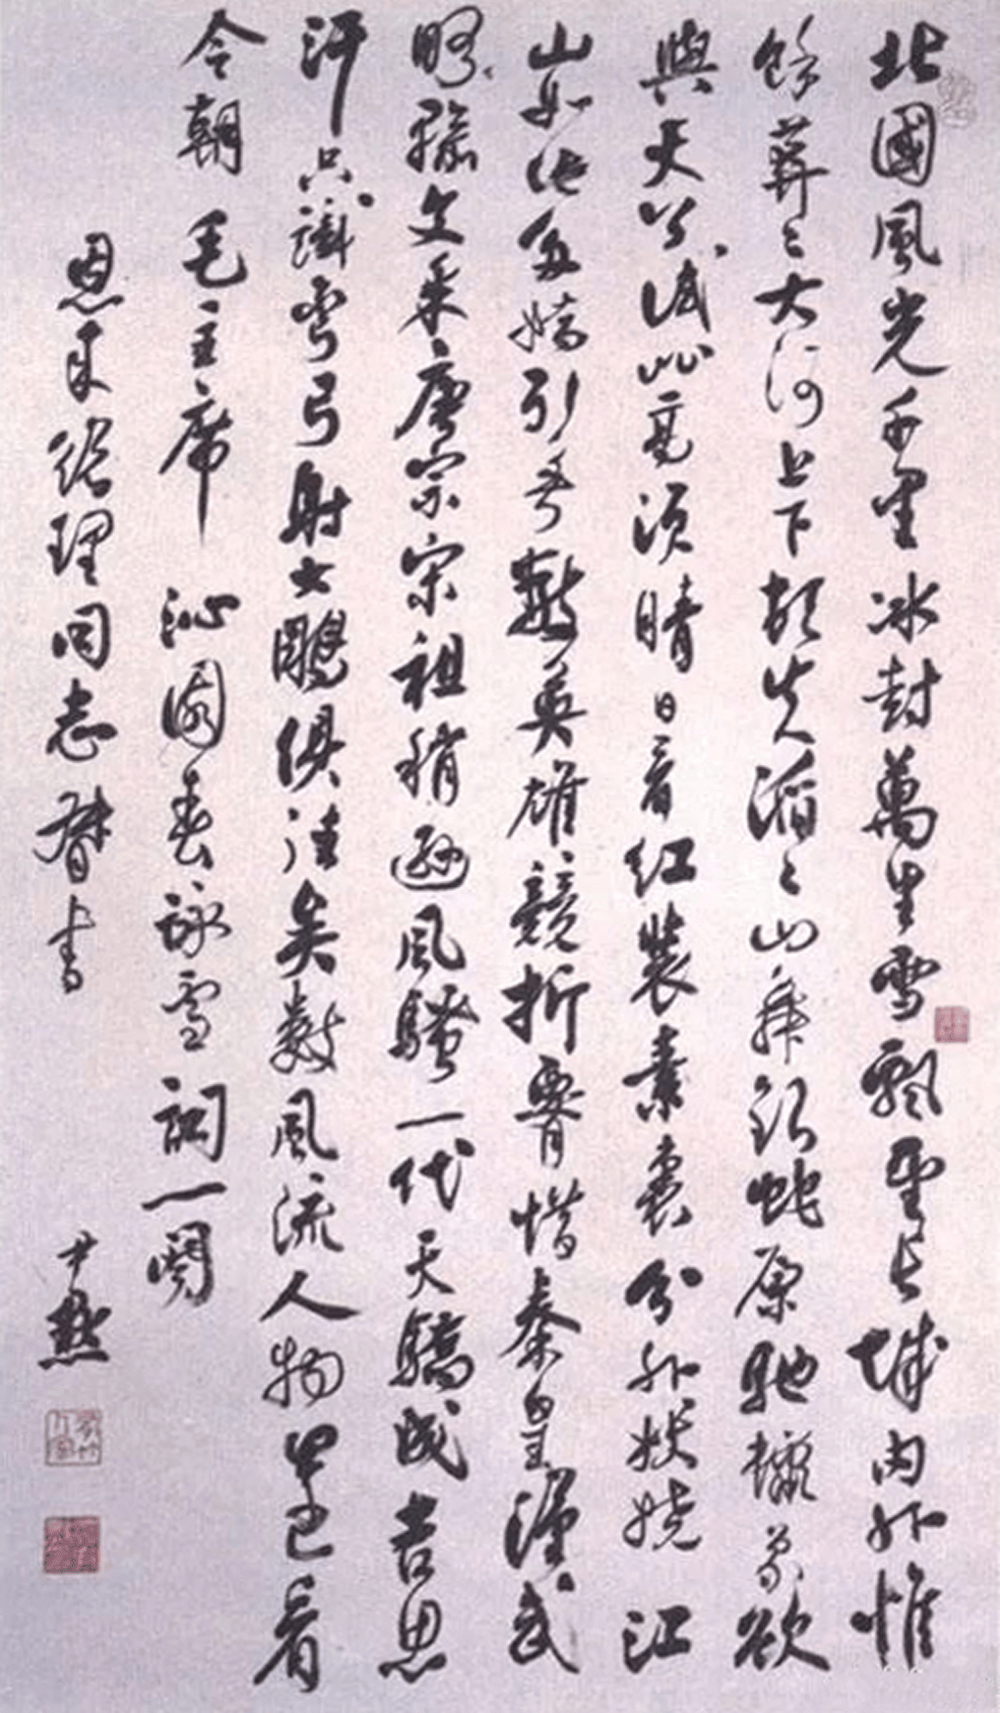 北國風光千里冰封萬里雪飄望長城内外惟
餘莽〻大河上下頓失滔〻山舞銀蛇原馳蠟象欲
與天公試比高須晴日看紅裝素裹分外妖嬈 江
山如此多嬌引無數英雄競折腰惜秦皇漢武
略輸文采唐宗宋祖稍遜風騷一代天驕成吉思
汗只識彎弓射大鵰俱往矣數風流人物還看
今朝 毛主席 沁園春詠雪詞一闋
恩来總理同志督書 尹默